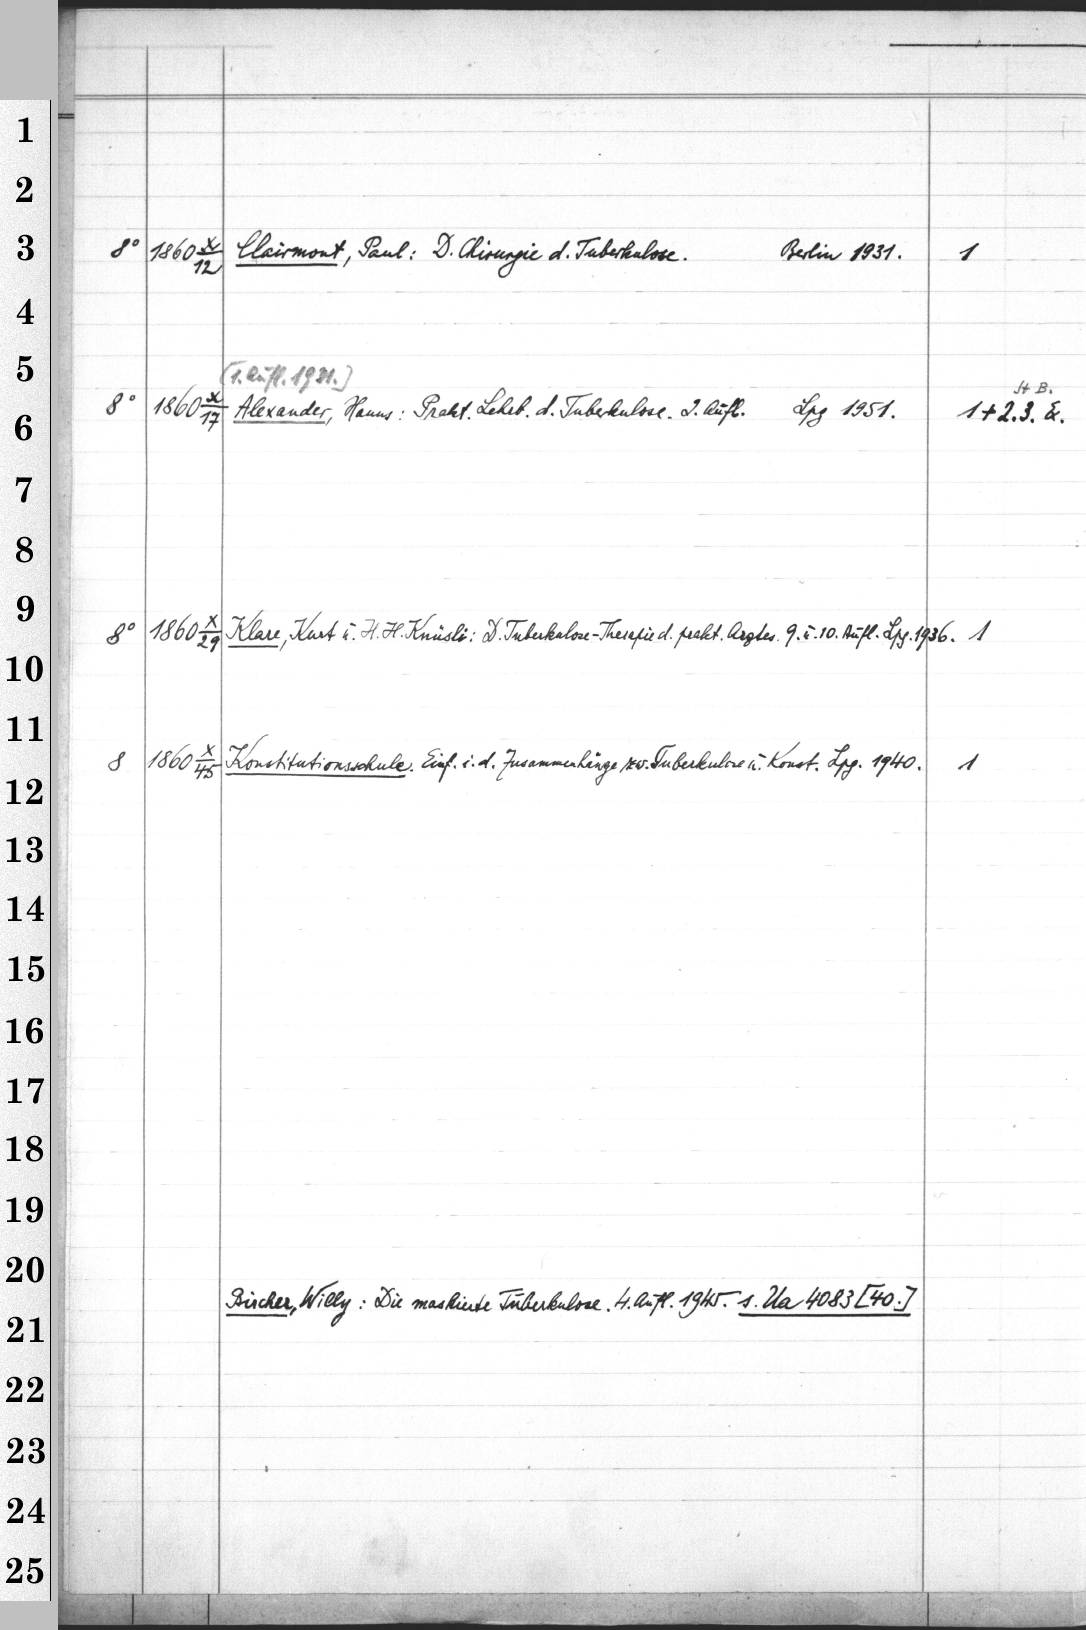 1
2
3
8° 1860 x/12 Clairmont, Paul: D. Chirurgie d. Tuberkulose. Berlin 1931. 1
4
5
[1. Aufl. 1921.]
H B.
8° 1860 x/17 Alexander, Hanns: Prakt. Lehrb. d. Tuberkulose. 2. Aufl. Lpg 1951. 1+2.3. E.
6
7
8
9
8° 1860 x/29 Klare, Kurt u. H. H. Knüsli: D. Tuberkulose-Therapie d. prakt. Arztes. 9. u. 10. Aufl. Lpg. 1936. 1
10
11
8 1860 x/45 Konstitutionsschule. Einf. i. d. Zusammenhänge zw. Tuberkulose u. Konst. Lpg. 1940. 1
12
13
14
15
16
17
18
19
20
Bircher, Willy: Die maskierte Tuberkulose. 4. Aufl. 1945. s. Ua 4083 [40.]
21
22
23
24
25